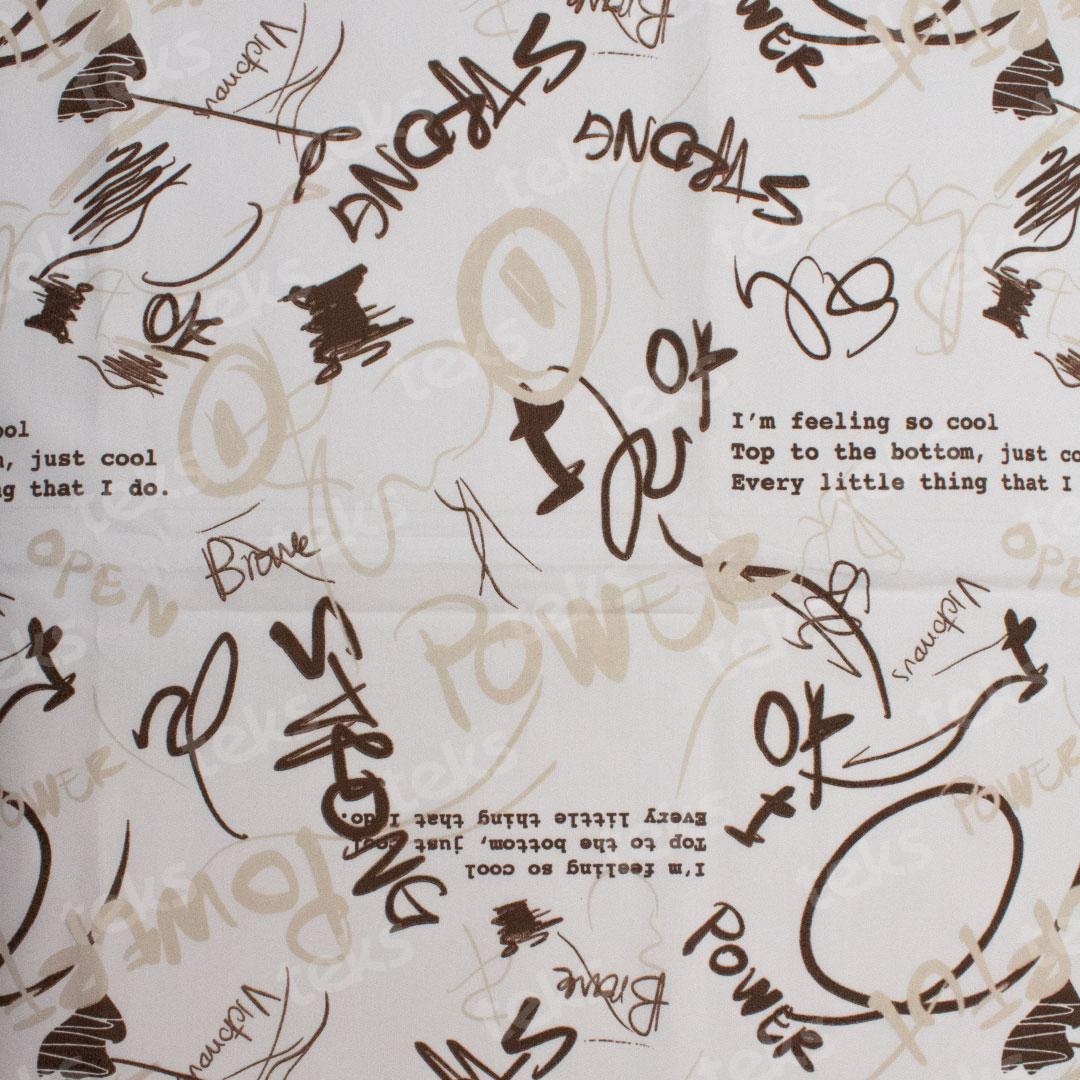 Brave
POWER
Victonars
STRONG
STRONG
OK
OK
I'm feeling so cool
Top to the bottom, just co
Every little thing that I
ool
, just cool
g that I do.
Brave
OPEN
OPE
POWER
Victonars
STRONG
OK
POWER
POWER
I'm feeling so cool
Top to the bottom, just cool
Every little thing that I do.
POWER
POWER
Brave
Victonars
ST
teks